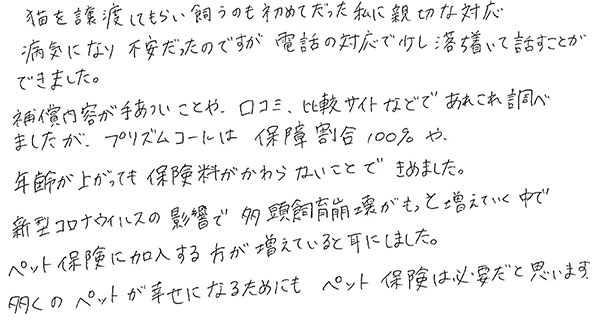 猫を譲渡してもらい飼うのも初めてだった私に親切な対応
病気になり不安だったのですが電話の対応で少し落ち着いて話すことが
できました。
補償内容が手あついことや、口コミ、比較サイトなどであれこれ調べ
ましたが、プリズムコールは 保障割合100%や、
年齢が上がっても保険料がかわらないことできめました。
新型コロナウイルスの影響で多頭飼育崩壊がもっと増えていく中で
ペット保険に加入する方が増えていると耳にしました。
多くのペットが幸せになるためにもペット保険は必要だと思います